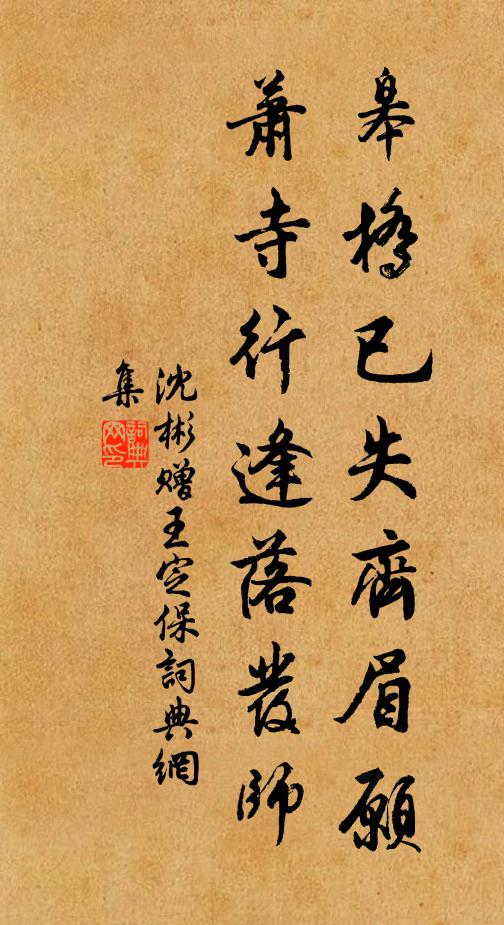 皋橋已失齊眉願
蕭寺行逢落發師
沈彬贈王定保詞典網
集
詞典
網印